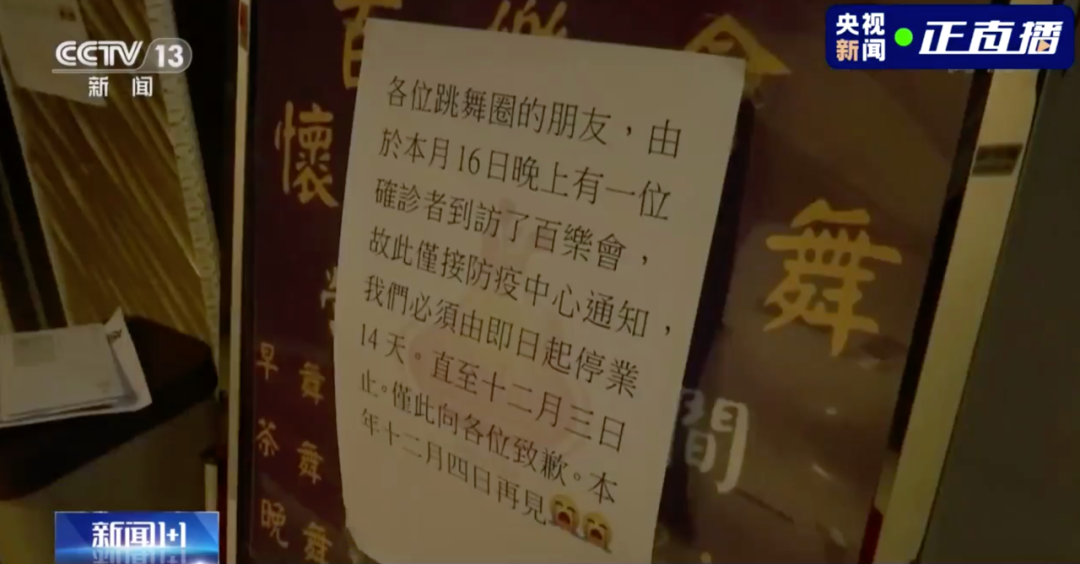 CCTV 13
新闻
央视
新闻
正直播
百樂會
懷
舞
間
早舞
茶舞
晚舞
各位跳舞圈的朋友，由
於本月16日晚上有一位
確診者到訪了百樂會，
故此僅接防疫中心通知，
我們必須由即日起停業
14天。直至十二月三日
止。僅此向各位致歉。本
年十二月四日再見😭😭
新闻1+1